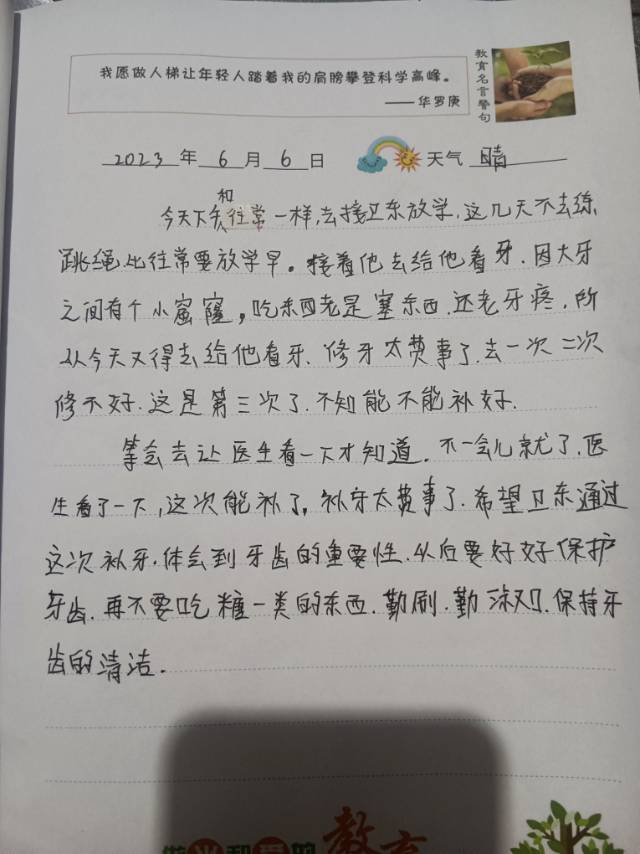 我愿做人梯让年轻人踏着我的肩膀攀登科学高峰。
——华罗庚
教育名言警句
2023年6月6日 天气 晴
今天下午和往常一样,去接卫东放学.这几天不去练
跳绳.比往常要放学早。接着他去给他看牙.因大牙
之间有个小窟窿。吃东西老是塞东西.还老牙疼.所
以今天又得去给他看牙.修牙太费事了.去一次二次
修不好.这是第三次了.不知能不能补好.
等会去让医生看一下才知道.不一会儿就了.医
生看了一下,这次能补了.补牙太费事了.希望卫东通过
这次补牙.体会到牙齿的重要性.从后要好好保护
牙齿.再不要吃糖一类的东西.勤刷.勤漱口.保持牙
齿的清洁.
教育